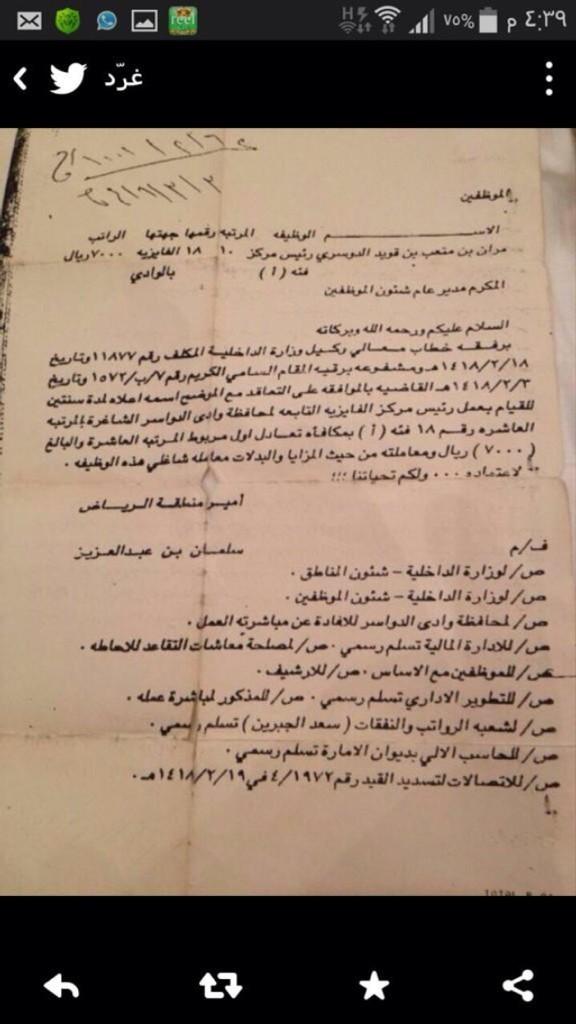 ٤:٣٩ م
٧٥%
H
reel
غرّد
الموظفين
الاســـــم الوظيفه المرتبه رقمها جهتها الراتب
مران بن متعب بن قويد الدوسري رئيس مركز ١٠ ١٨ الفايزيه ٧٠٠٠ ريال
فئه ( أ ) بالوادي
المكرم مدير عام شئون الموظفين
السلام عليكم ورحمه الله وبركاته
برفقه خطاب معالي وكيل وزارة الداخلية المكلف رقم ١١٨٧٧ وتاريخ
١٤١٨/٢/١٨هـ ومشفوعه برقيه المقام السامي الكريم رقم ٧/ب/١٥٧٢ وتاريخ
١٤١٨/٢/٣هـ القاضيه بالموافقه على التعاقد مع الموضح اسمه اعلاه لمدة سنتين
للقيام بعمل رئيس مركز الفايزيه التابعه لمحافظة وادى الدواسر الشاغرة بالمرتبه
العاشره رقم ١٨ فئه ( أ ) بمكافأه تعادل اول مربوط المرتبه العاشرة والبالغ
( ٧٠٠٠ ) ريال ومعاملته من حيث المزايا والبدلات معامله شاغلي هذه الوظيفه .
لاعتماده ... ولكم تحياتنا !!!
أمير منطقة الرياض
ف/م سلمان بن عبدالعزيز
ص/لوزارة الداخلية - شئون المناطق .
ص/لوزارة الداخلية - شئون الموظفين .
ص/لمحافظة وادى الدواسر للافادة عن مباشرته العمل .
ص/للادارة المالية تسلم رسمي . ص/لمصلحة معاشات التقاعد للاحاطه .
ص/للموظفين مع الاساس . ص/للارشيف .
ص/للتطوير الاداري تسلم رسمي . ص/للمذكور لمباشرة عمله .
ص/لشعبه الرواتب والنفقات ( سعد الجبرين ) تسلم رسمي .
ص/للحاسب الالي بديوان الامارة تسلم رسمي .
ص/للاتصالات لتسديد القيد رقم ٤/١٩٧٢ في ١٤١٨/٢/١٩هـ .